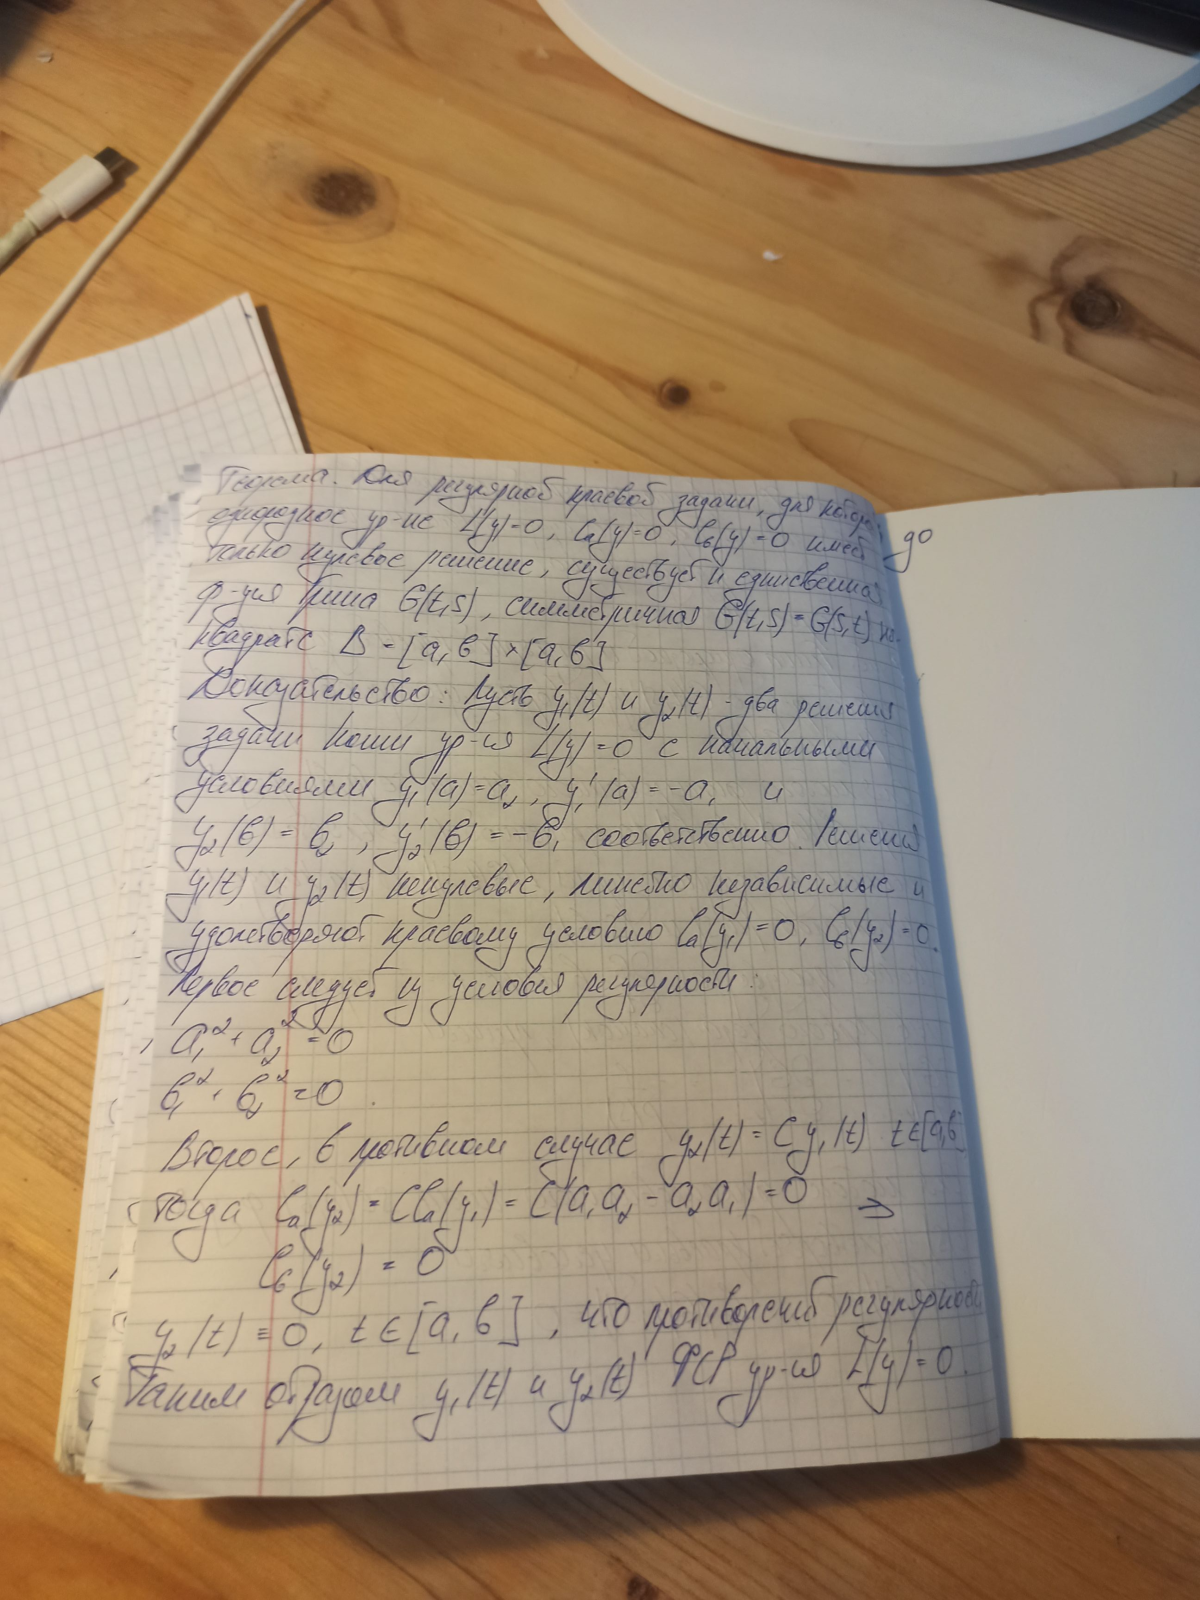 Теорема. Для регулярной краевой задачи, для которо
однородное ур-ие L(y)=0, ℓₐ(y)=0, ℓ_б(y)=0 имеет
только нулевое решение, существует и единственная
ф-ция Грина G(t,s), симметричная G(t,s)=G(s,t) на
квадрате B = [a,b]×[a,b]
Доказательство: Пусть y₁(t) и y₂(t) - два решения
задачи Коши ур-ия L(y)=0 с начальными
условиями y₁(a)=a₂, y₁'(a)=-a₁ и
y₂(b)=b₂, y₂'(b)=-b₁ соответственно. Решения
y₁(t) и y₂(t) ненулевые, линейно независимые и
удолетворяют краевому условию ℓₐ(y₁)=0, ℓ_б(y₂)=0.
Первое следует из условия регулярности:
a₁² + a₂² = 0
b₁² + b₂² = 0.
Второе, в противном случае y₂(t) = Cy₁(t) t∈[a,b]
тогда ℓₐ(y₂) = Cℓₐ(y₁) = C(a₁a₂ - a₂a₁) = 0 ⇒
ℓ_б(y₂) = 0
y₂(t) ≡ 0, t∈[a,b], что противоречит регулярности
Таким образом y₁(t) и y₂(t) ФСР ур-ия L(y)=0.